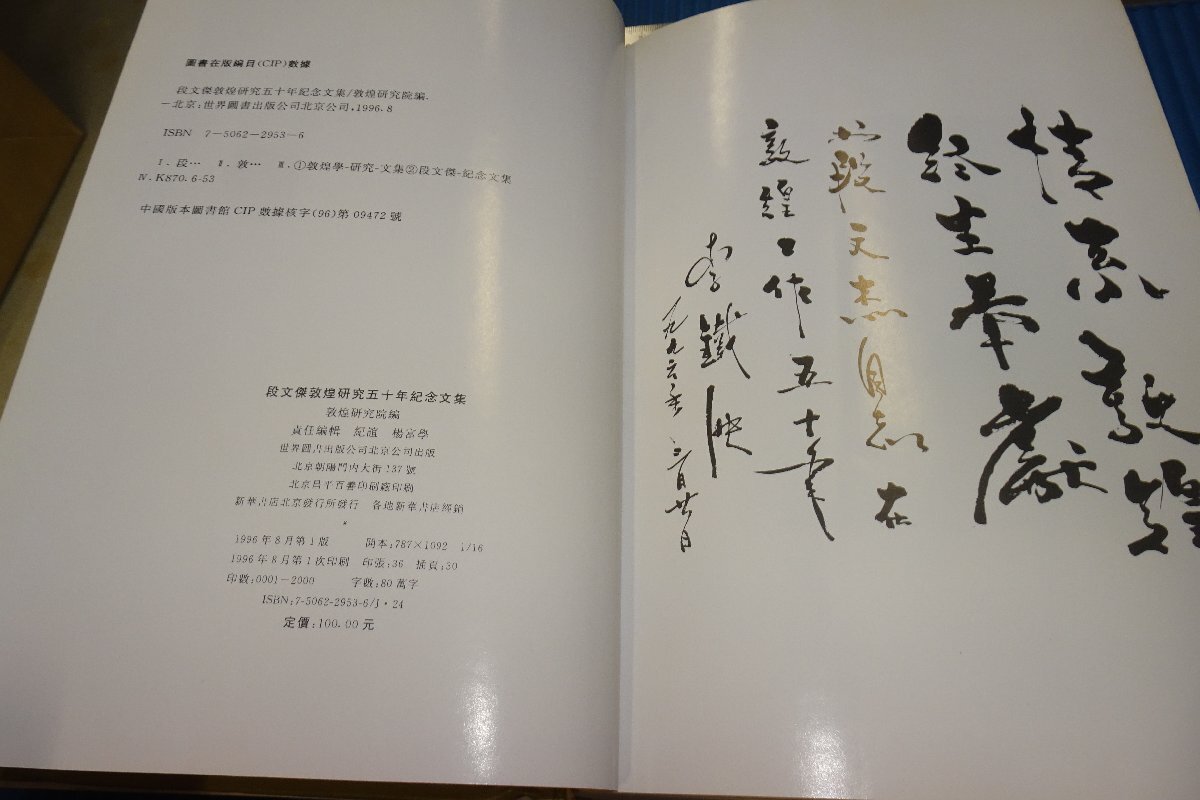 圖書在版編目(CIP)數據
段文傑敦煌研究五十年紀念文集/敦煌研究院編.
－北京：世界圖書出版公司北京公司,1996.8
ISBN 7－5062－2953－6
Ⅰ.段… Ⅱ.敦… Ⅲ.①敦煌學-研究-文集②段文傑-紀念文集
Ⅳ.K870.6-53
中國版本圖書館 CIP 數據核字(96)第 09472 號
段文傑敦煌研究五十年紀念文集
敦煌研究院編
責任編輯 紀誼 楊富學
世界圖書出版公司北京公司出版
北京朝陽門内大街 137 號
北京昌平百善印刷廠印刷
新華書店北京發行所發行 各地新華書店經銷
*
1996 年 8 月第 1 版 開本:787×1092 1/16
1996 年 8 月第 1 次印刷 印張:36 插頁:30
印數:0001－2000 字數:80 萬字
ISBN:7-5062-2953-6/J・24
定價:100.00 元
情系敦煌
終生奉獻
段文杰同志在
敦煌工作五十年
李鐵映
一九九六年三月廿日